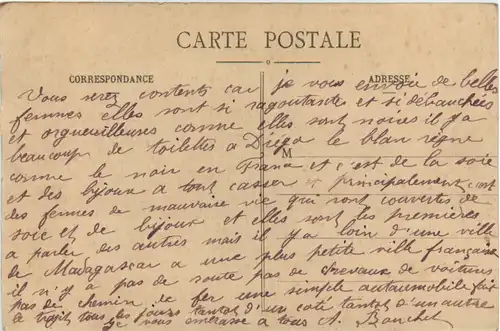 CARTE POSTALE
CORRESPONDANCE
ADRESSE
M
Vous serez contents car je vous envoie de belles
femmes elles sont si ragoutantes et si débauchées
et orgueilleuses comme elles sont noires il y a
beaucoup de toilettes a Diego le blan règne
comme le noir en France et c'est de la soie
et des bijoux a tout casser et principalement c'est
des femmes de mauvaise vie qui sont couvertes de
soie et de bijoux et elles sont les premières
a parler des autres mais il y a loin d'une ville
de Madagascar a une plus petite ville française
il n'y à pas de route pas de chevaux de voitures
pas de chemin de fer une simple automobile fait
le trajet tous les jours tantot d'un coté tantot d'un autre
Je vous embrasse a tous A. Bouchet